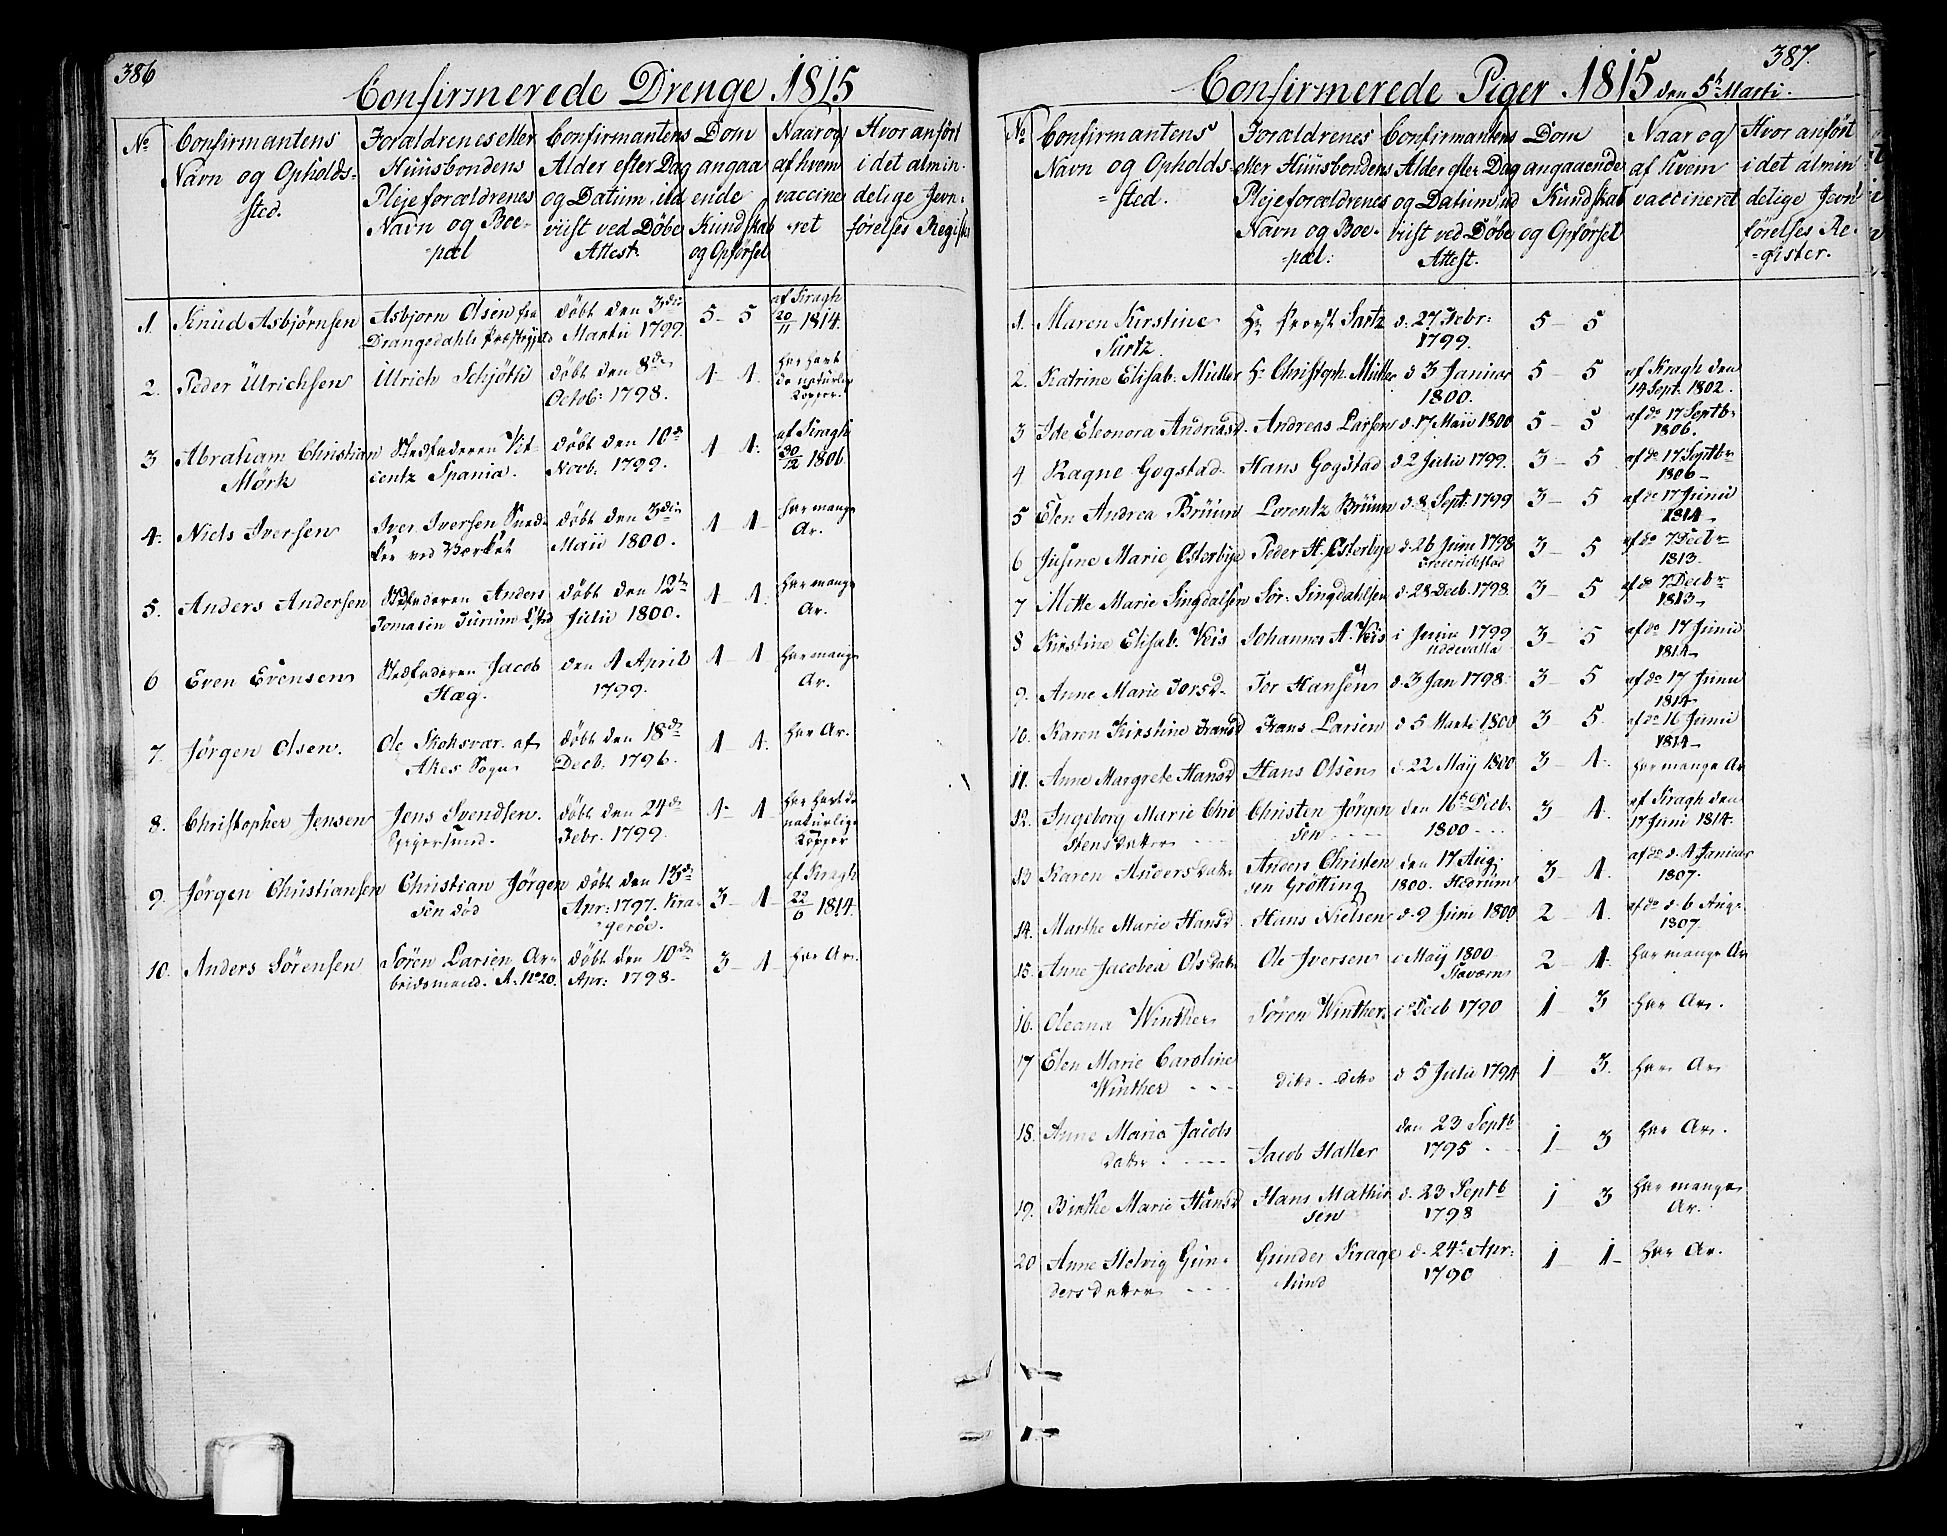 386
Confirmerede Drenge 1815
No
Confirmantens
Navn og Opholds-
sted.
Forældrenes eller
Huusbondens
Plejeforældrenes
Navn og Boe-
-pæl
Confirmantens
Alder efter Dag
og Datum, ud
viist ved Döbe
Attest.
Dom
angaa
ende
Kundskab
og Opførsel
Naar og
af hvem
vaccine
ret
Hvor anført
i det almin-
delige Jevn-
førelses Regist
1. Knud Asbjørnsen
Asbjørn Olsen fra
Drangedahls Præstegjeld
døbt den 3die
Martii 1799.
5 - 5
af Kragh
20/11 1814.
2. Peder Ulrichsen
Ulrich Schjøth
døbt den 8de
Octob: 1798.
4 - 4.
har havt
de naturlige
Kopper.
3 Abraham Christian
Mørk
Stedfaderen Vi-
centz Spania.
døbt den 10de
Novb. 1799.
4 4.
af Kragh
30/12 1806.
4. Niels Iversen
Iver Iversen Sned-
ker ved Værket
døbt den 3die
Maii 1800.
4 4 -
har mange
Ar.
5. Anders Andersen
Stedfaderen Anders
Tomasen
døbt den 12te
Julii 1800.
4 - 4.
har mange
Ar.
6 Even Evensen
Stedfaderen Jacob
Hæg.
den 4 April
1799.
4 - 4
har mange
Ar.
7. Jørgen Olsen.
Ole Skoksvær. af
Akes Sogn
døbt den 18de
Decb. 1796.
4 - 4.
har Ar.
8. Christopher Jensen
Jens Svendsen.
døbt den 24de
Febr. 1799.
4 - 4
har havt de
naturlige
Kopper
9. Jørgen Christiansen
Christian Jørgen
sen død
døbt den 13de
Apr: 1797. Kra-
gerøe.
3 - 4 -
af Kragh
22/6 1814.
10. Anders Sørensen
Søren Larsen Ar-
beidsmand. A. No 20.
døbt den 10de
Apr: 1798.
3 - 4 -
har Ar.
387.
Confirmerede Piger 1815 den 5t Marti.
No
Confirmantens
Navn og Opholds-
-sted.
Forældrenes
eller Huusbondens
Plejeforældrenes
Navn og Boe-
-pæl.
Confirmantens
Alder efter Dag
og Datum ud
viist ved Döbe
Attest.
Dom
angaaende
Kundskab
og Opførsel
Naar og
af hvem
vaccineret
Hvor anført
i det almin
delige Jevn
førelses Re-
-gister.
1. Maren Kirstine
Surtz.
Hr. Provst Sartz
d. 27 Febr:
1799.
5 - 5
2. Katrine Elisab. Müller
Hr Christoph. Müller
d 3 Januar
1800.
5 - 5
af Kragh den
14 Sept. 1802.
3 Ide Eleonora Andreasd.
Andreas Larsen
d. 17 Maii 1800
5 - 5
af do 17 Septb-
1806.
4 Ragne Gogstad.
Hans Gogstad
d 2 Julii 1799.
3 - 5
af do 17 Septb-
1806 -
5 Elen Andrea Brüün
Lorentz Brüün
d. 8 Sept. 1799
3 - 5
af do 17 Junii
1814 -
6 Jusine Marie Østerbye
Peder H. Østerbye
d. 26 Juni 1798
Frederichstad
3 - 5
af do 7 Decb-
1813.
7 Mette Marie Singdalsen
Sør. Singdahlsen
d. 28 Decb. 1798.
3 - 5
af do 7 Decb-
1813 -
8 Kirstine Elisab. Veis
Johannes A. Veis
i Junii 1799
Uddevalla
3 - 5
af do 17 Junii
1814 -
9. Anne Marie Torsd.
Tor Hansen
d. 3 Jan 1798.
3 - 5
af do 17 Junii
1814 -
10. Karen Kirstine Hansd
Hans Larsen
d 5 Marti 1800
3 - 5.
af do 16 Junii
1814 -
11. Anne Margrete Hansd
Hans Olsen
d. 22 Maij 1800
3 - 4.
har mange Ar
12. Ingeborg Marie Chri
stensdatter
Christen Jørgen
sen
den 16d Decb.
1800
3 - 4.
af Kragh den
17 Juni 1814.
13 Karen Andersdatr
Anders Christen
sen Grötting
den 17 Aug.
1800. Hedrum
3 - 4.
af do d. 4 Januar
1807.
14. Marthe Marie Hansd.
Hans Nielsen
d. 9 Juni 1800
2 - 4.
af do d. 6 Aug.
1807.
15. Anne Jacobea Olsdatr
Ole Iversen
i Maij 1800
Staværn
2 - 4.
har mange Ar
16. Oleana Winther
Søren Winther
i Decb 1790
1 - 3
har Ar.
17 Elen Marie Caroline
Winther
dito - dito
d 5 Julii 1794
1 - 3.
har Ar
18. Anne Maria Jacobs
datter
Jacob Halter
den 23 Septb
1795
1 - 3
har Ar.
19. Birthe Marie Hansd
Hans Mathi
sen
d. 23 Septb
1798
1 - 3
har mange
Ar.
20 Anne Helvig Gun-
dersdatter
Gunder Krage
lund
d. 24t Apr:
1790
1 - 1 -
har Ar.